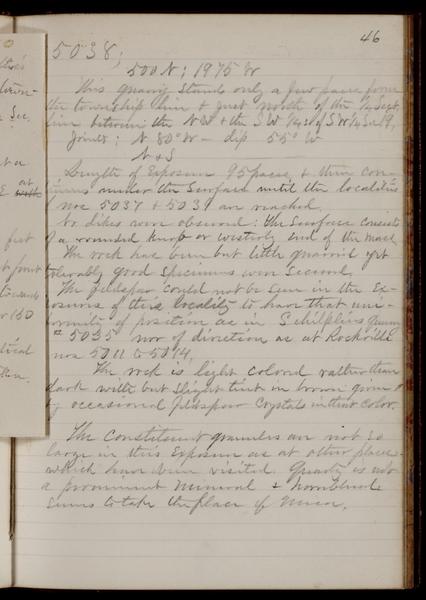 46
5038;
500 N; 1975 W
This quarry stands only a few paces from
the township line & just north of the 1/4 sect.
line between the NW & the SW 1/4s of SW 1/4 Sec 19,
Joints; N 80° W – dip 55° W
N & S
Length of Exposure 95 paces, & then con-
tinues under the surface until the localities
nos 5037 & 5039 are reached.
No dikes were observed: The surface consists
of a rounded knob or westerly end of the mass
The rock have been but little quarried yet
tolerably good specimens were secured.
The feldspar could not be seen in the Ex-
posures of this locality to have that uni-
formity of position as in Schilplins quarry
# 5035 nor of direction as at Rockville
nos 5011 to 5014.
The rock is light colored rather than
dark with but slight tint in brown given
by occasional feldspar crystals in that color.
The constituent granules are not so
large in this Exposure as at other places
which have been visited. Quartz is not
a prominent mineral & hornblende
seems to take the place of mica.
town-
Sec.
at
feet
point
towards
150